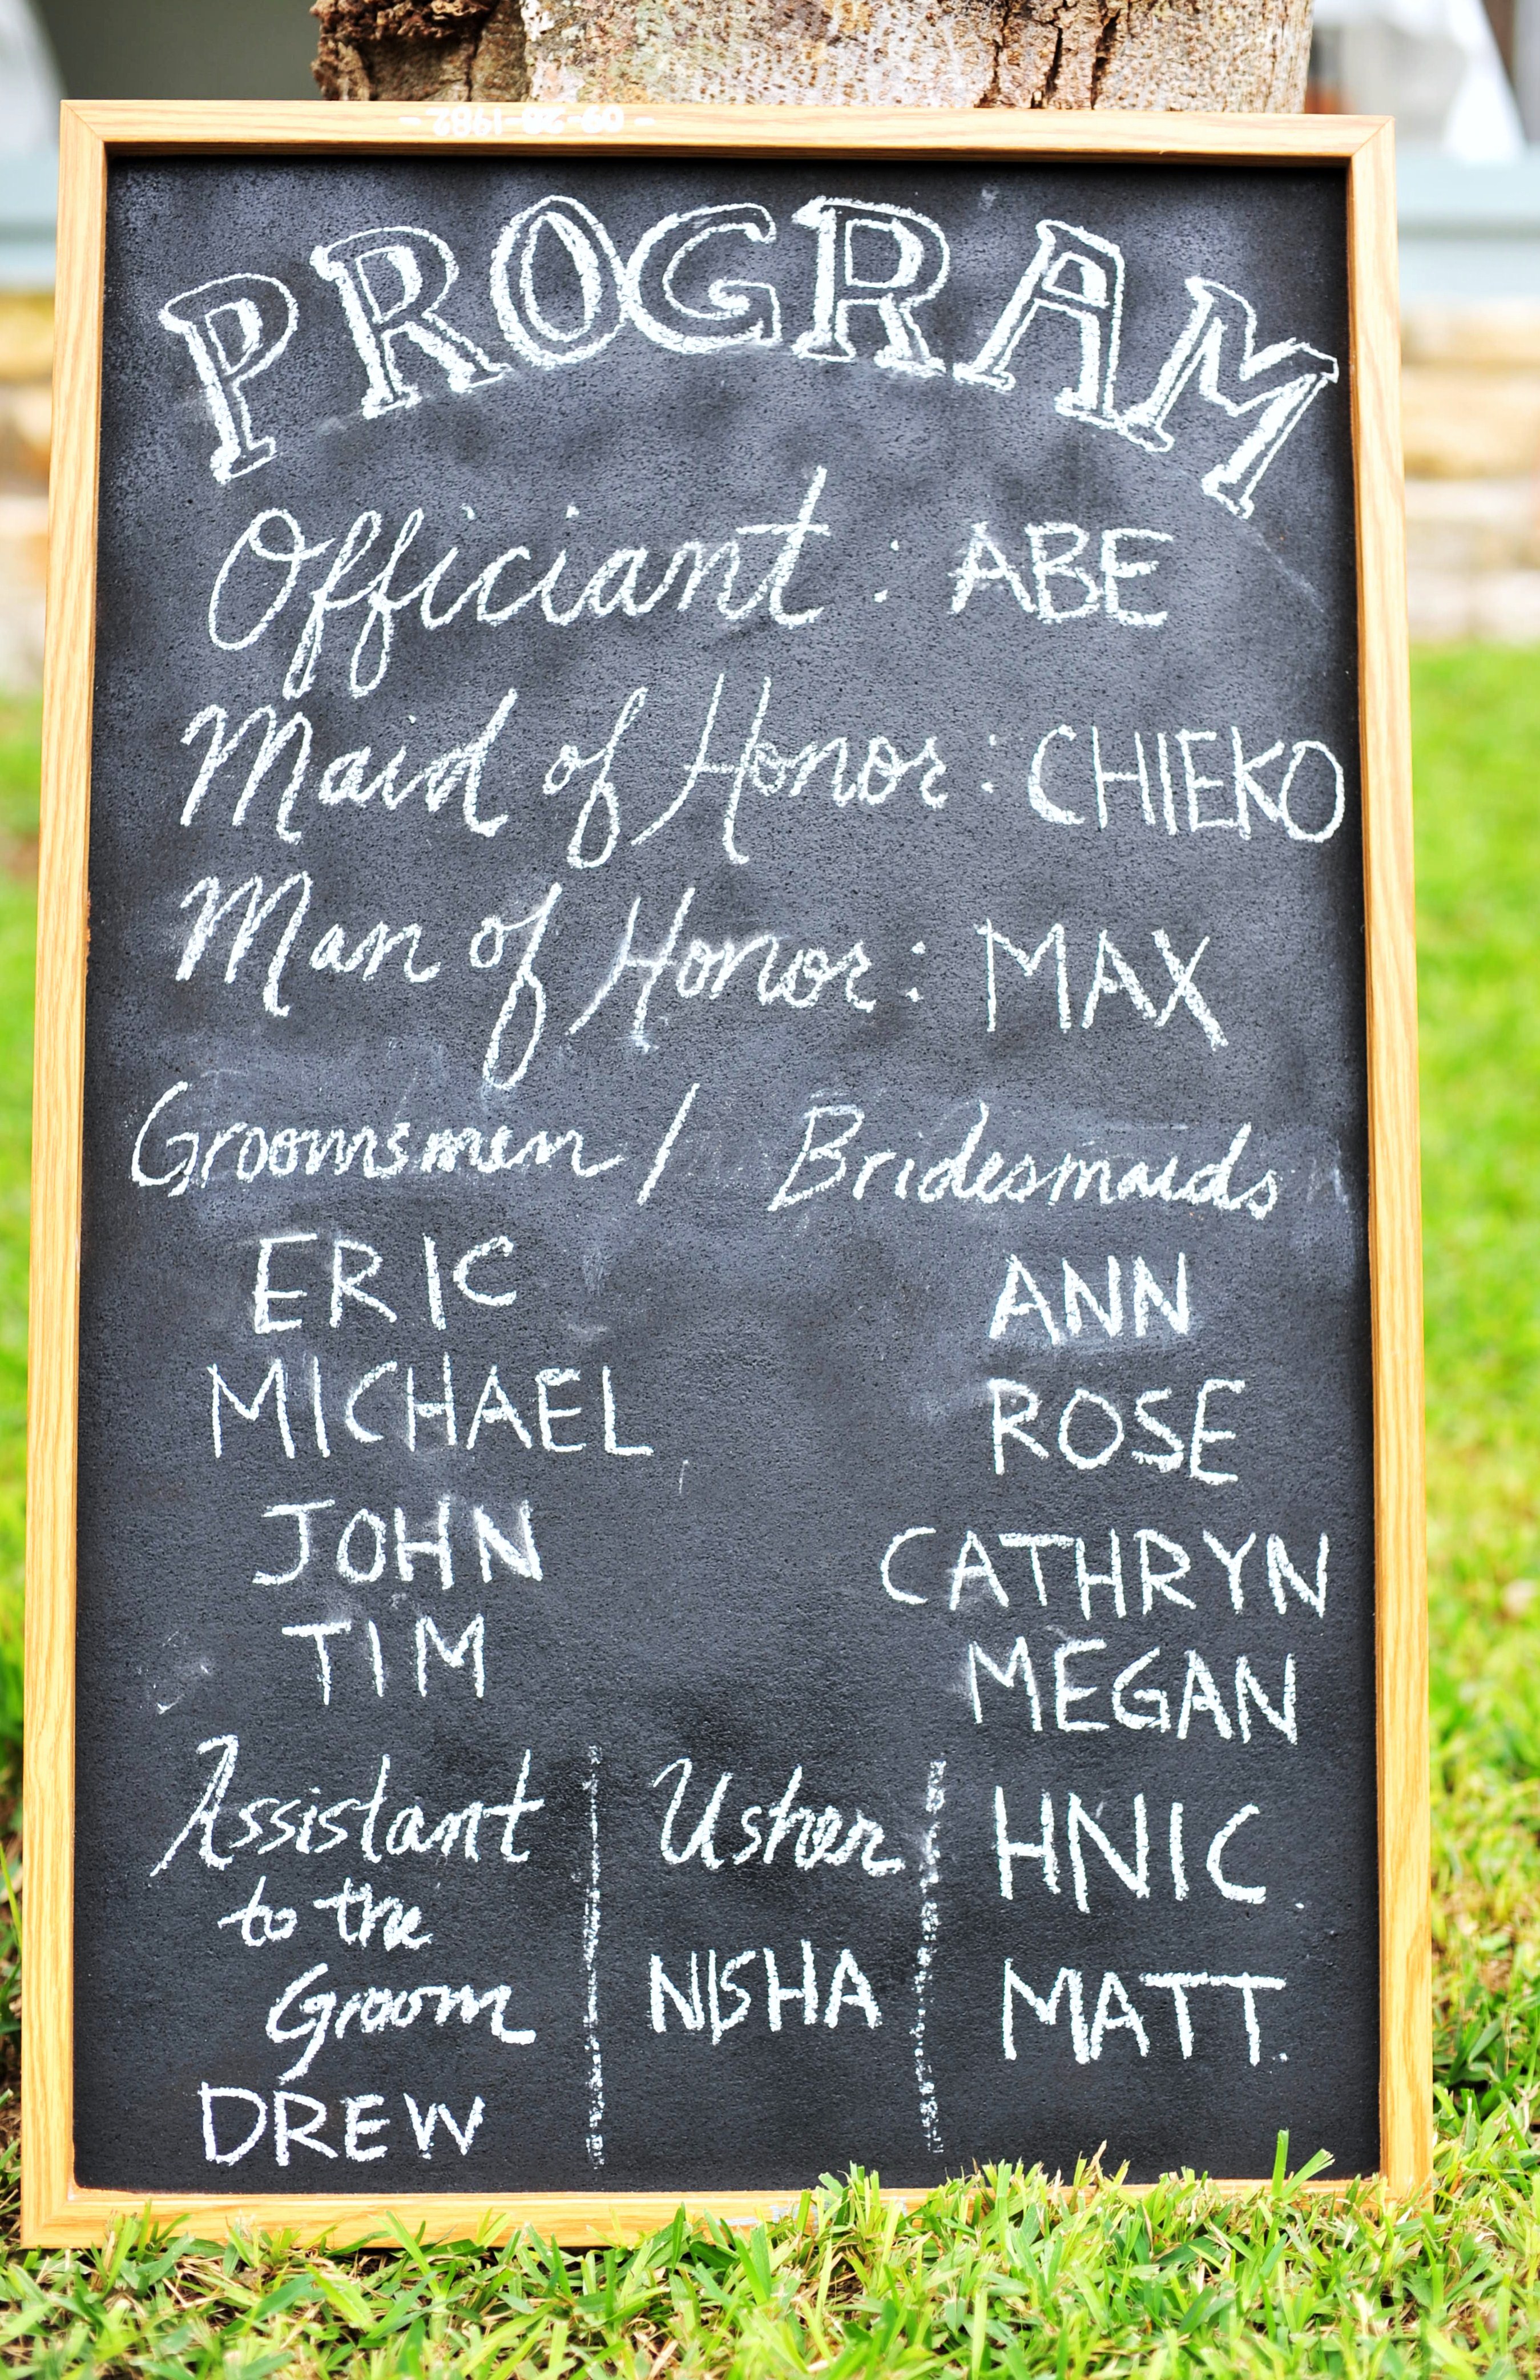 - 09-28-1982 -
PROGRAM
Officiant : ABE
Maid of Honor : CHIEKO
Man of Honor : MAX
Groomsmen / Bridesmaids
ERIC ANN
MICHAEL ROSE
JOHN CATHRYN
TIM MEGAN
Assistant
to the
Groom
DREW
Usher
NISHA
HNIC.
MATT.